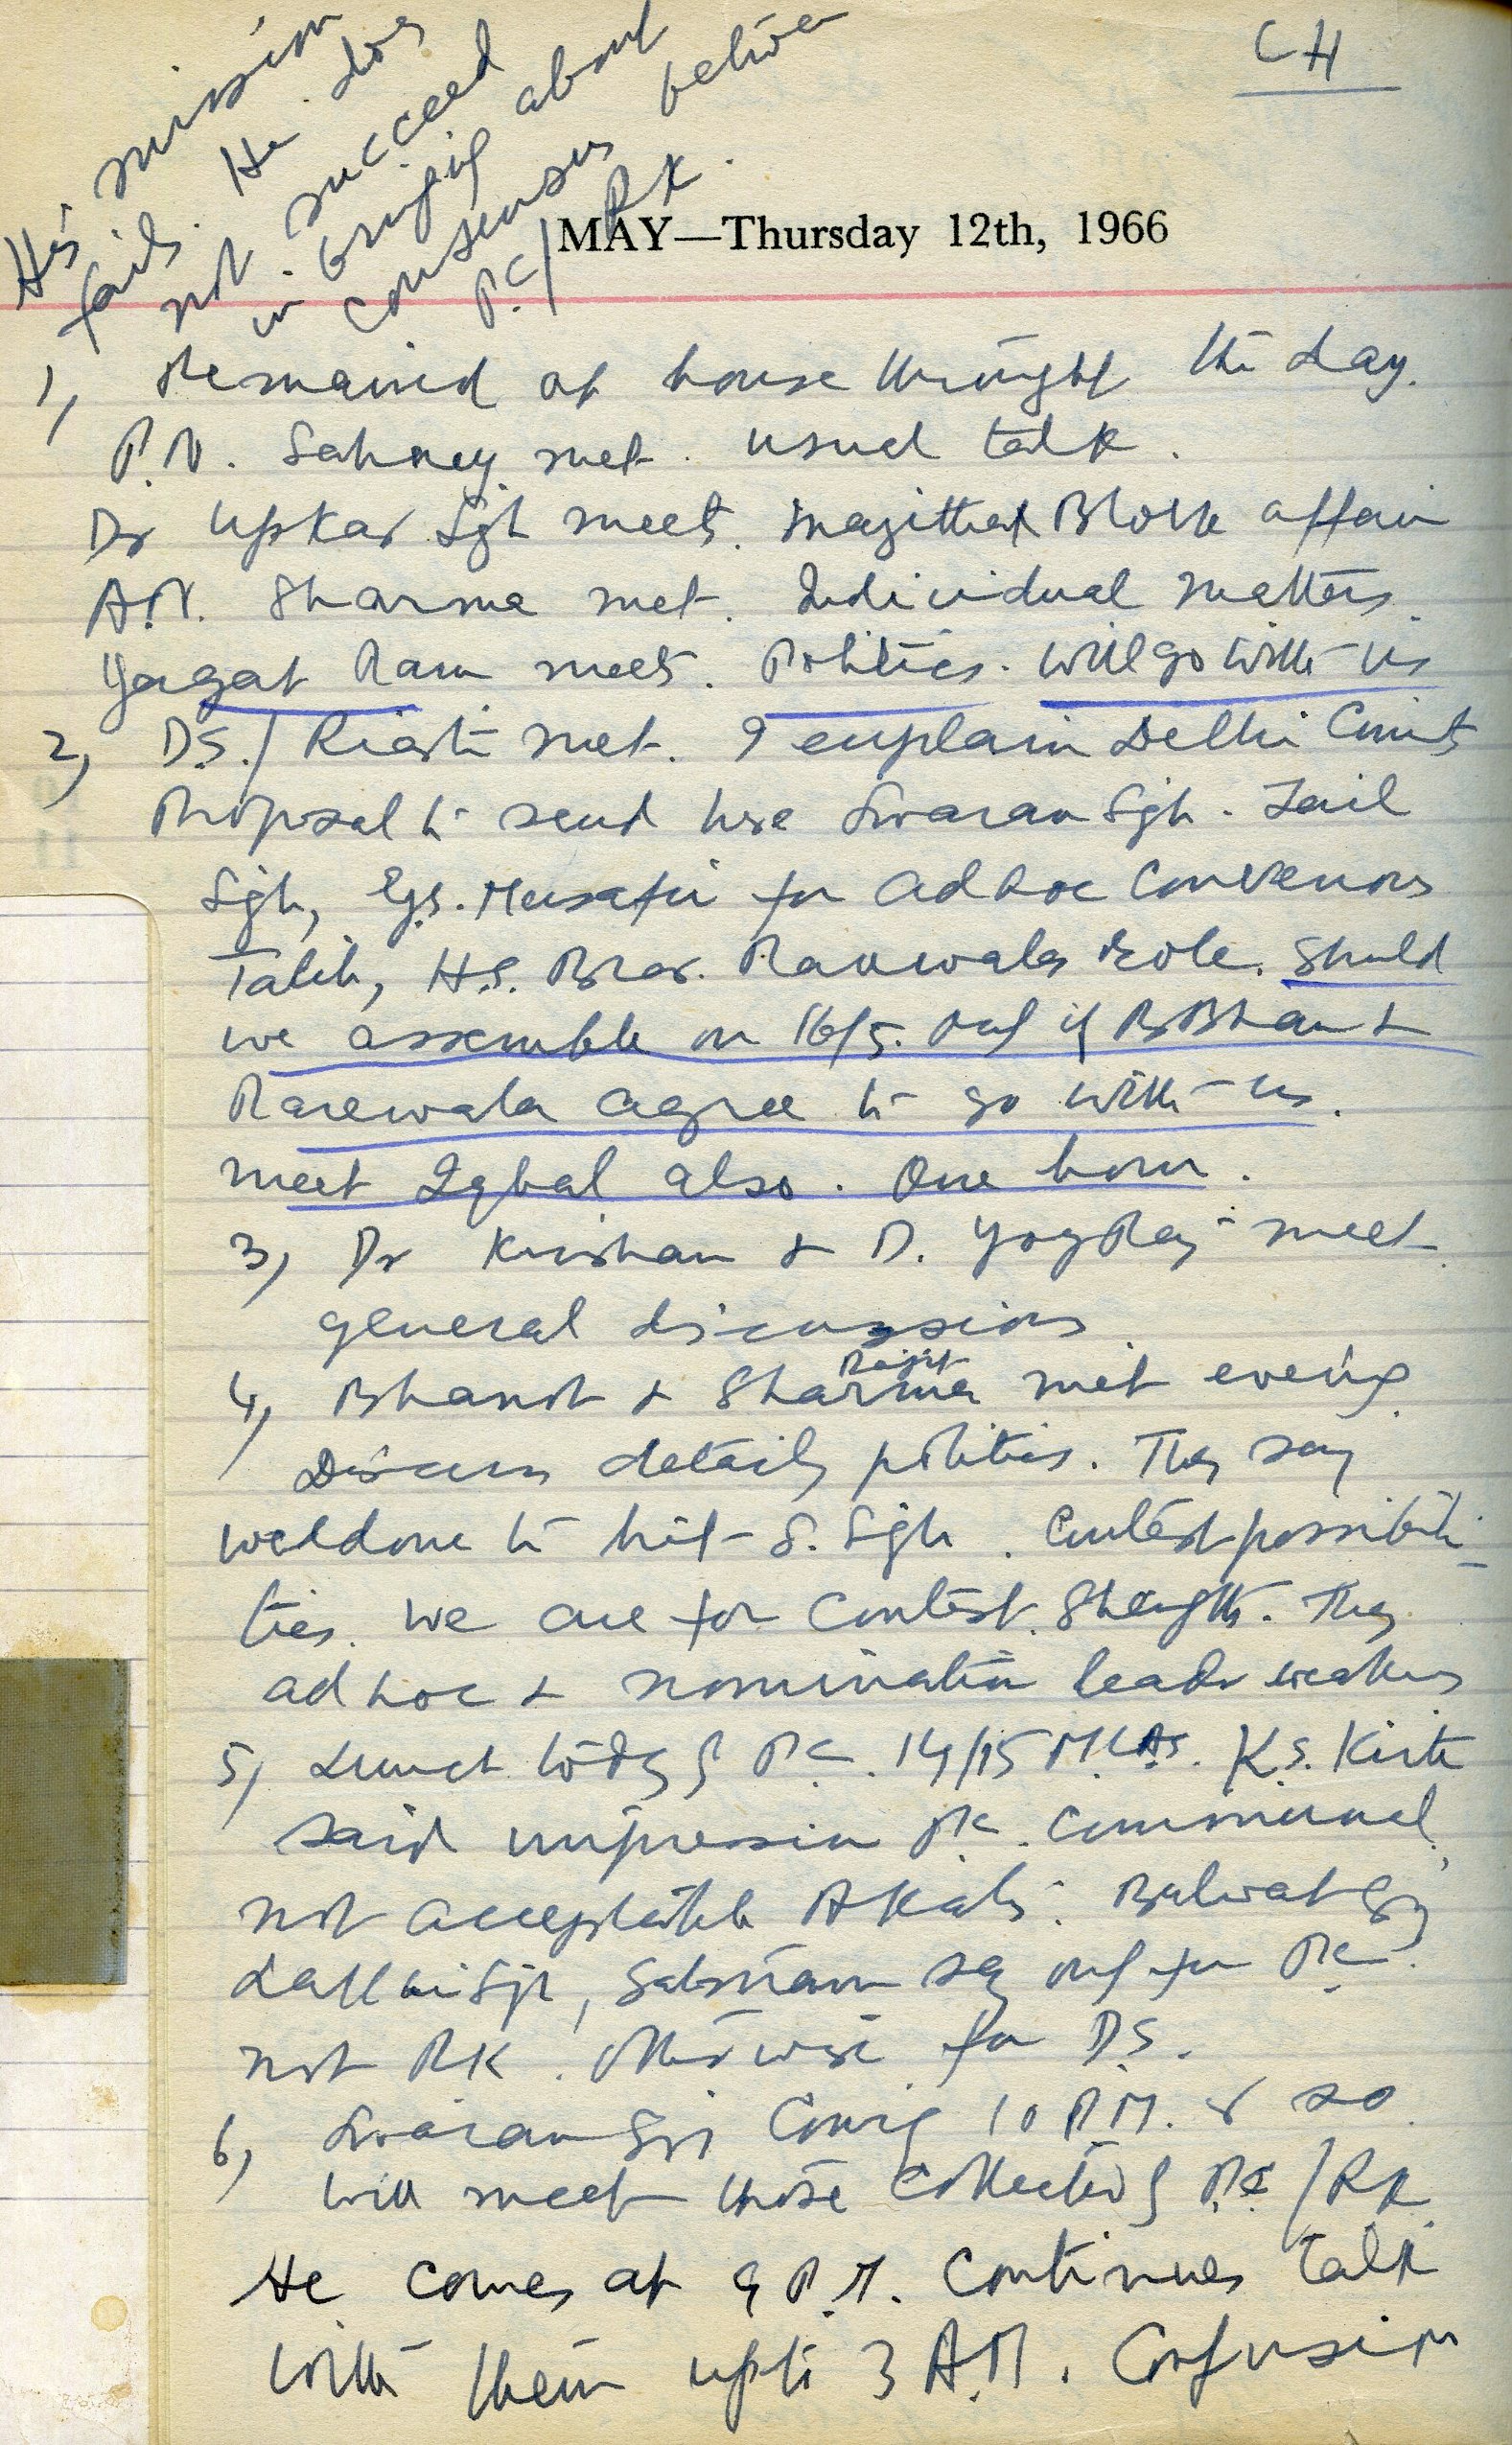 CH
His mission
fails. He does
not succeed
in bringing about
consensus between
P.C/ RK.
MAY—Thursday 12th, 1966
1, Remained at house through the day.
P.N. Sahney met. usual talk.
Dr Upkar Sgh meets. Majitha Block affair
A.N. Sharma met. Individual matters.
Yagat Ram meets. Politics. will go with us
2, D.S./ Riasti met. I explain Delhi
Proposal to send here Swaran Sgh. Zail
Sgh, G.S. Musafir for adhoc Convenors
Talib, H.S. Brar. Rarewala role. Should
we assemble on 16/5. only if B Bhan &
Rarewala agree to go with us.
meet Iqbal also. One hour.
3, Dr Krishan & D. Yog Raj meet.
general discussions
4, Bhanot & Sharma met evening.
Discuss details politics. They say
welldone to hit S. Sgh. Contest possibili-
ties. we are for contest. Strength. They
adhoc & nomination leads weakness
5, Lunch today P.C. 14/15 M.L.As. K.S. Kirti
said impression P.C. communal,
not acceptable Akalis. Balwat Sgh
Lakhi Sgh, Satnam say only for P.C.
not RK. Otherwise for D.S.
6, Swaran Sgh coming 10 P.M. or so.
will meet those collecting P.C /RK.
He comes at 9 P.M. Continues talk
with them upto 3 A.M. Confusion